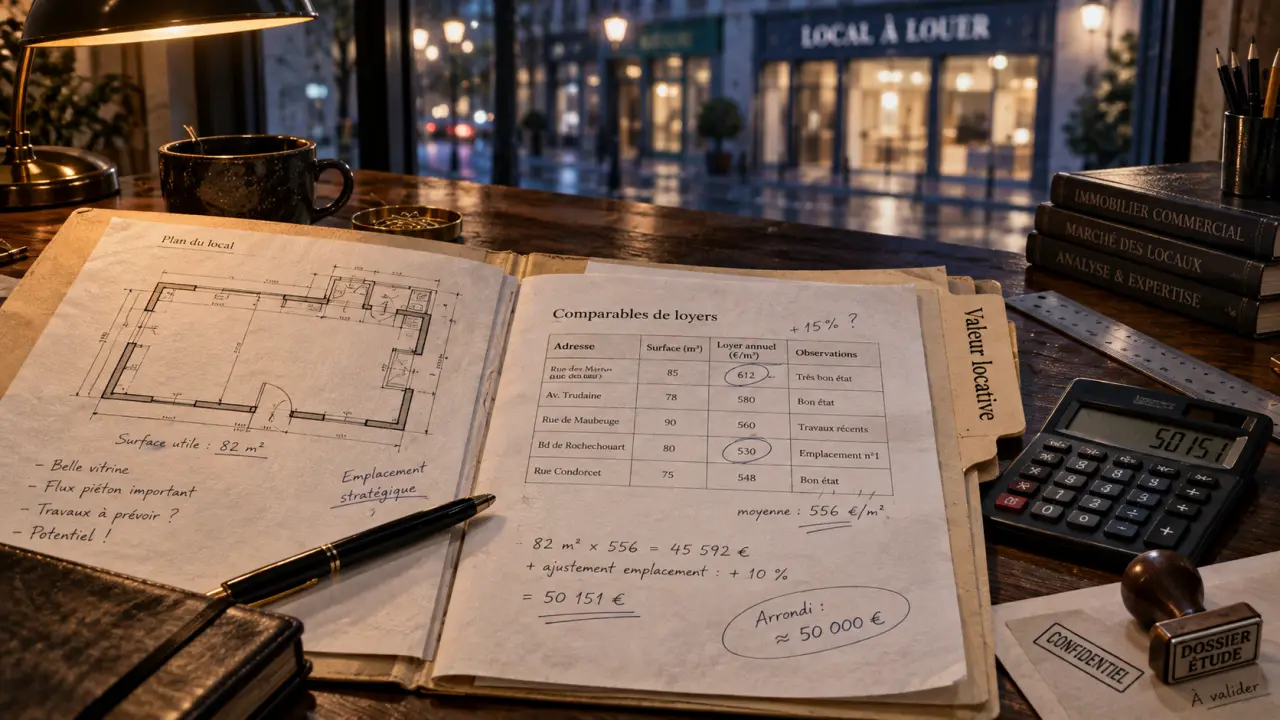 LOCAL À LOUER
IMMOBILIER COMMERCIAL
MARCHÉ DES LOCAUX
ANALYSE & EXPERTISE
Plan du local
Surface utile : 82 m²
– Belle vitrine
– Flux piéton important
– Travaux à prévoir ?
– Potentiel !
Emplacement
stratégique
Comparables de loyers
+ 15 % ?
Adresse Surface (m²) Loyer annuel (€/m²) Observations
Rue des 85 612 Très bon état
Av. Trudaine 78 580 Bon état
Rue de Maubeuge 90 560 Travaux récents
Bd de Rochechouart 80 530 Emplacement n°1
Rue Condorcet 75 548 Bon état
moyenne : 556 €/m².
82 m² x 556 = 45 592 €
+ ajustement emplacement : + 10 %
= 50 151 €
Arrondi :
≈ 50 000 €
Valeur locative
50151
CONFIDENTIEL
DOSSIER
ÉTUDE
À valider